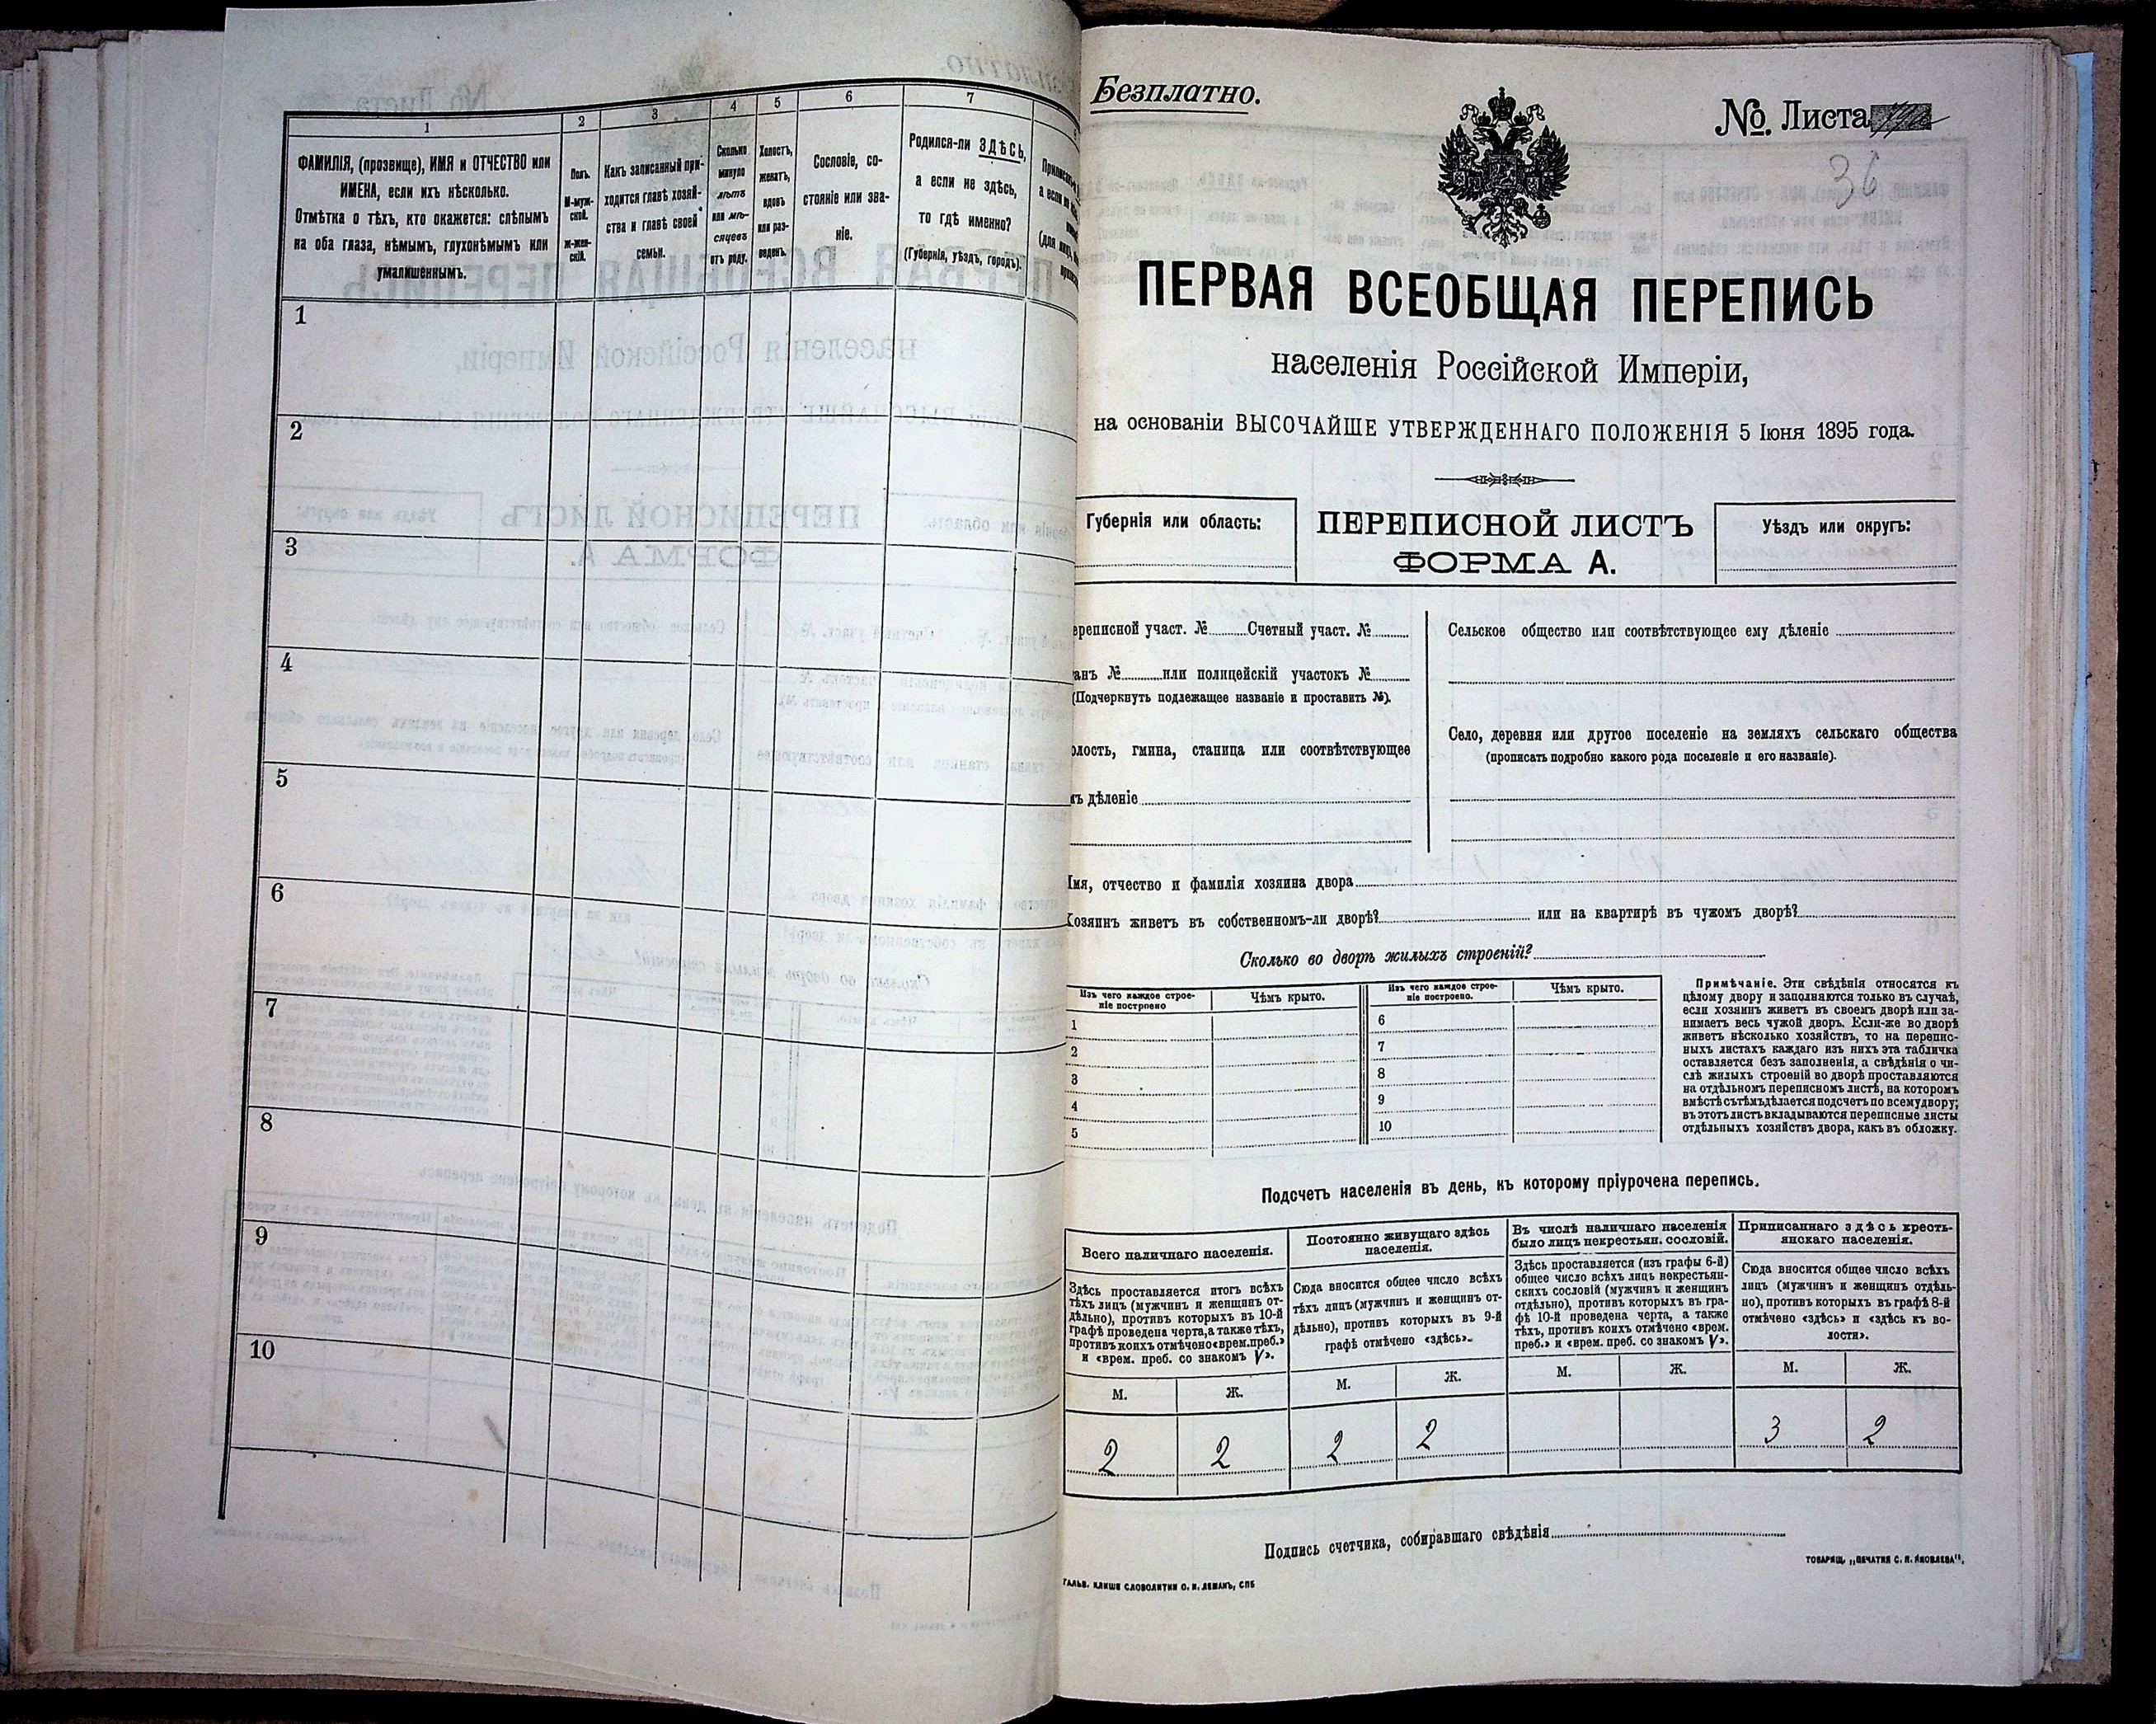 1
2
3
4
5
6
7
ФАМИЛІЯ, (прозвище), ИМЯ и ОТЧЕСТВО или
ИМЕНА, если ихъ нѣсколько.
Отмѣтка о тѣхъ, кто окажется: слѣпымъ
на оба глаза, нѣмымъ, глухонѣмымъ или
умалишеннымъ.
Полъ.
М-муж-
ской.
Ж-жен-
скій.
Какъ записанный при-
ходится главѣ хозяй-
ства и главѣ своей
семьи.
Сколько
минуло
лѣтъ
или мѣ-
сяцевъ
отъ роду.
Холостъ,
женатъ,
вдовъ
или раз-
веденъ.
Сословіе, со-
стояніе или зва-
ніе.
Родился-ли ЗДѢСЬ,
а если не здѣсь,
то гдѣ именно?
(Губернія, уѣздъ, городъ).
1
2
3
4
5
6
7
8
9
10
Безплатно.
№. Листа
36
ПЕРВАЯ ВСЕОБЩАЯ ПЕРЕПИСЬ
населенія Россійской Имперіи,
на основаніи ВЫСОЧАЙШЕ УТВЕРЖДЕННАГО ПОЛОЖЕНІЯ 5 Іюня 1895 года.
Губернія или область:
ПЕРЕПИСНОЙ ЛИСТЪ
ФОРМА А.
Уѣздъ или округъ:
ереписной участ. № Счетный участ. №
анъ № или полицейскій участокъ №
(Подчеркнуть подлежащее названіе и проставить №).
олость, гмина, станица или соотвѣтствующее
мъ дѣленіе
Сельское общество или соотвѣтствующее ему дѣленіе
Село, деревня или другое поселеніе на земляхъ сельскаго общества
(прописать подробно какого рода поселеніе и его названіе).
Имя, отчество и фамилія хозяина двора
Хозяинъ живетъ въ собственномъ-ли дворѣ? или на квартирѣ въ чужомъ дворѣ?
Сколько во дворѣ жилыхъ строеній?
Изъ чего каждое строе-
ніе построено
Чѣмъ крыто.
Изъ чего каждое строе-
ніе построено.
Чѣмъ крыто.
1
2
3
4
5
6
7
8
9
10
Примѣчаніе. Эти свѣдѣнія относятся къ
цѣлому двору и заполняются только въ случаѣ,
если хозяинъ живетъ въ своемъ дворѣ или за-
нимаетъ весь чужой дворъ. Если-же во дворѣ
живетъ нѣсколько хозяйствъ, то на перепис-
ныхъ листахъ каждаго изъ нихъ эта табличка
оставляется безъ заполненія, а свѣдѣнія о чи-
слѣ жилыхъ строеній во дворѣ проставляются
на отдѣльномъ переписномъ листѣ, на которомъ
вмѣстѣ съ тѣмъ дѣлается подсчетъ по всему двору;
въ этотъ листъ вкладываются переписные листы
отдѣльныхъ хозяйствъ двора, какъ въ обложку.
Подсчетъ населенія въ день, къ которому пріурочена перепись.
Всего наличнаго населенія.
Здѣсь проставляется итогъ всѣхъ
тѣхъ лицъ (мужчинъ и женщинъ от-
дѣльно), противъ которыхъ въ 10-й
графѣ проведена черта, а также тѣхъ,
противъ коихъ отмѣчено «врем. преб.»
и «врем. преб. со знакомъ V».
Постоянно живущаго здѣсь
населенія.
Сюда вносится общее число всѣхъ
тѣхъ лицъ (мужчинъ и женщинъ от-
дѣльно), противъ которыхъ въ 9-й
графѣ отмѣчено «здѣсь».
Въ числѣ наличнаго населенія
было лицъ некрестьян. сословій.
Здѣсь проставляется (изъ графы 6-й)
общее число всѣхъ лицъ некрестьян-
скихъ сословій (мужчинъ и женщинъ
отдѣльно), противъ которыхъ въ гра-
фѣ 10-й проведена черта, а также
тѣхъ, противъ коихъ отмѣчено «врем.
преб.» и «врем. преб. со знакомъ V».
Приписаннаго здѣсь кресть-
янскаго населенія.
Сюда вносится общее число всѣхъ
лицъ (мужчинъ и женщинъ отдѣль-
но), противъ которыхъ въ графѣ 8-й
отмѣчено «здѣсь» и «здѣсь къ во-
лости».
М. Ж. М. Ж. М. Ж. М. Ж.
2 2 2 2 3 2
Подпись счетчика, собиравшаго свѣдѣнія
ТОВАРИЩ. „ПЕЧАТНЯ С. П. ЯКОВЛЕВА".
ГАЛЬВ. КЛИШЕ СЛОВОЛИТНИ О. И. ЛЕМАНЪ, СПБ